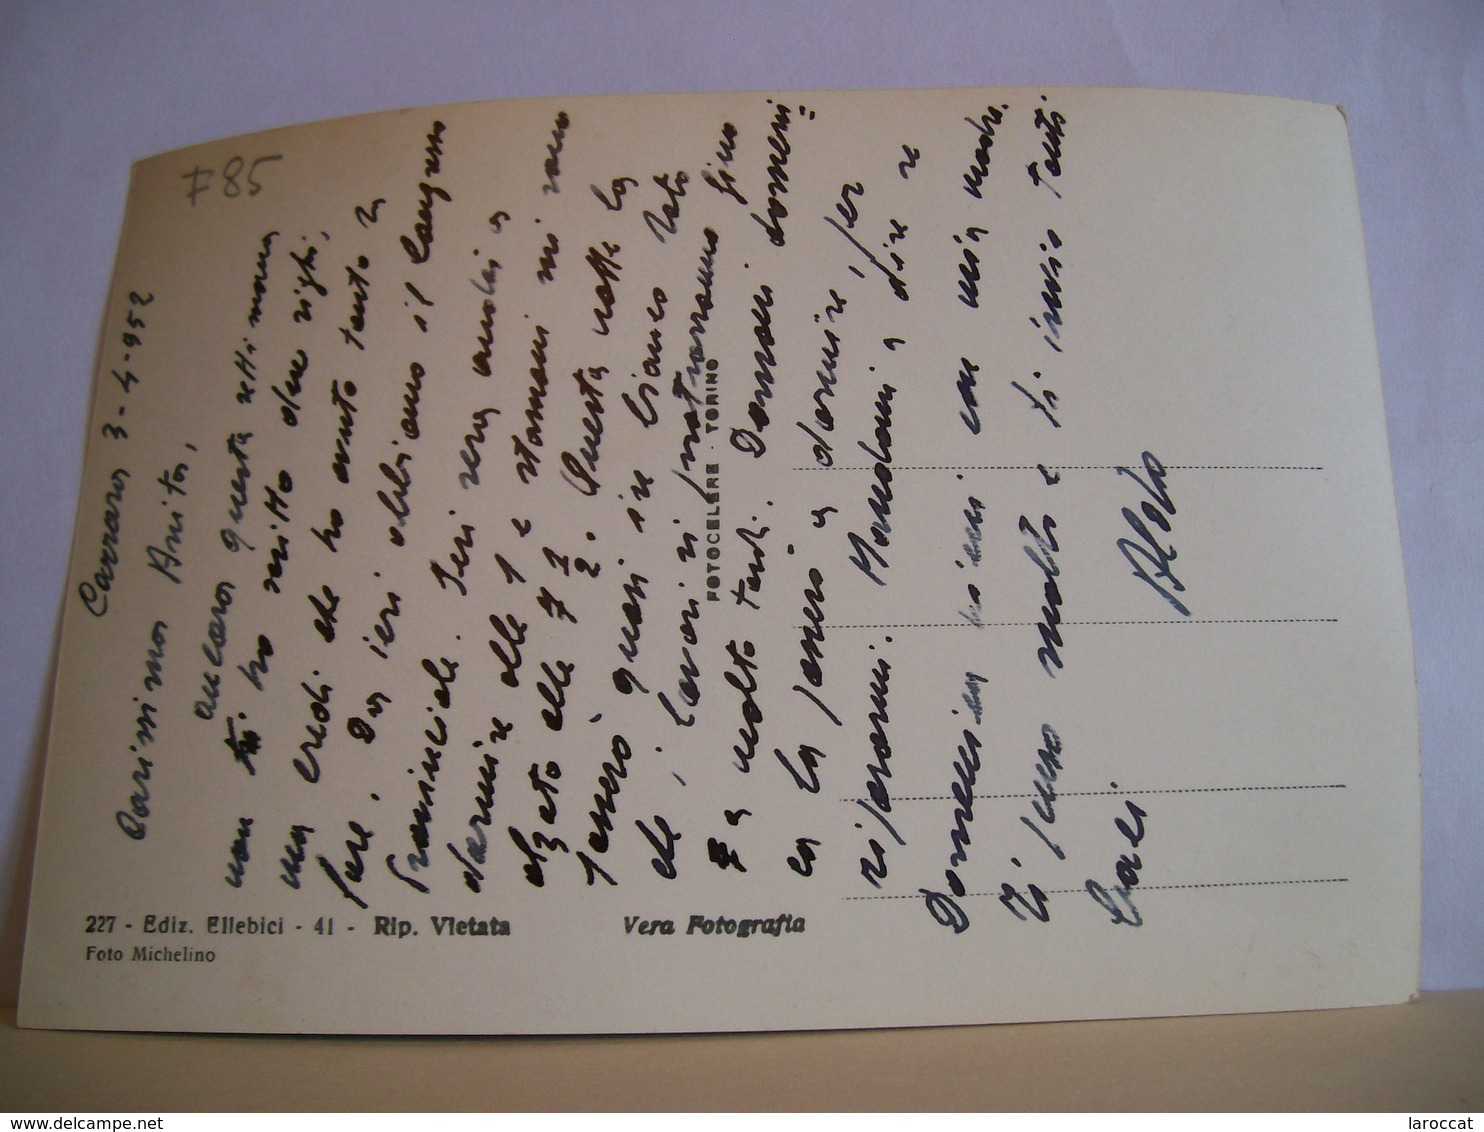 # 85
Carrara 3-4-952
Carissima Anita,
ancora questa settimana
non ti ho scritto due righi,
ma credi che ho avuto tanto da
fare. Da ieri abbiamo il Congresso
Provinciale. Ieri sera andai a
dormire alle 1 e stamani mi sono
alzato alle 7 1/2. Questa notte la
passerò quasi in bianco dato
che i lavori si protrarranno fino
a molto tardi. Domani domeni=
ca la passerò a dormire, per
riposarmi. Mandami a dire se
Domenica vieni con mia madre.
Ti penso molto e ti invio tanti
baci
Aldo
FOTOCELERE · TORINO
227 - Ediz. Ellebici - 41 - Rip. Vietata
Vera Fotografia
Foto Michelino
delcampe.net
laroccat